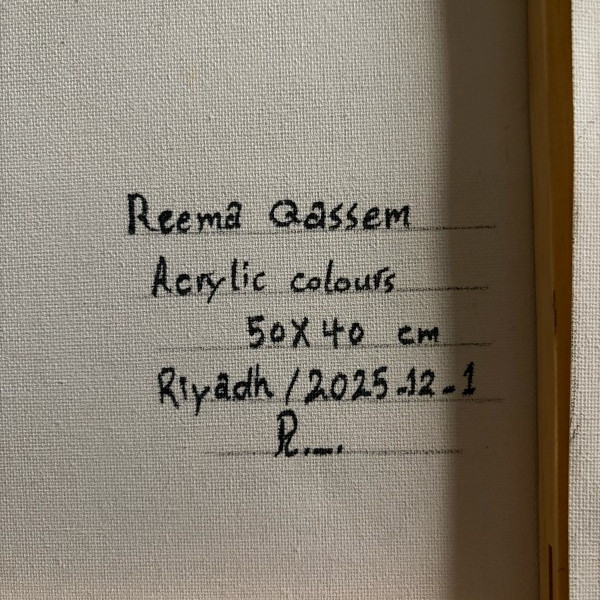 Reema Qassem
Acrylic colours
50X40 cm
Riyadh / 2025-12-1
R....